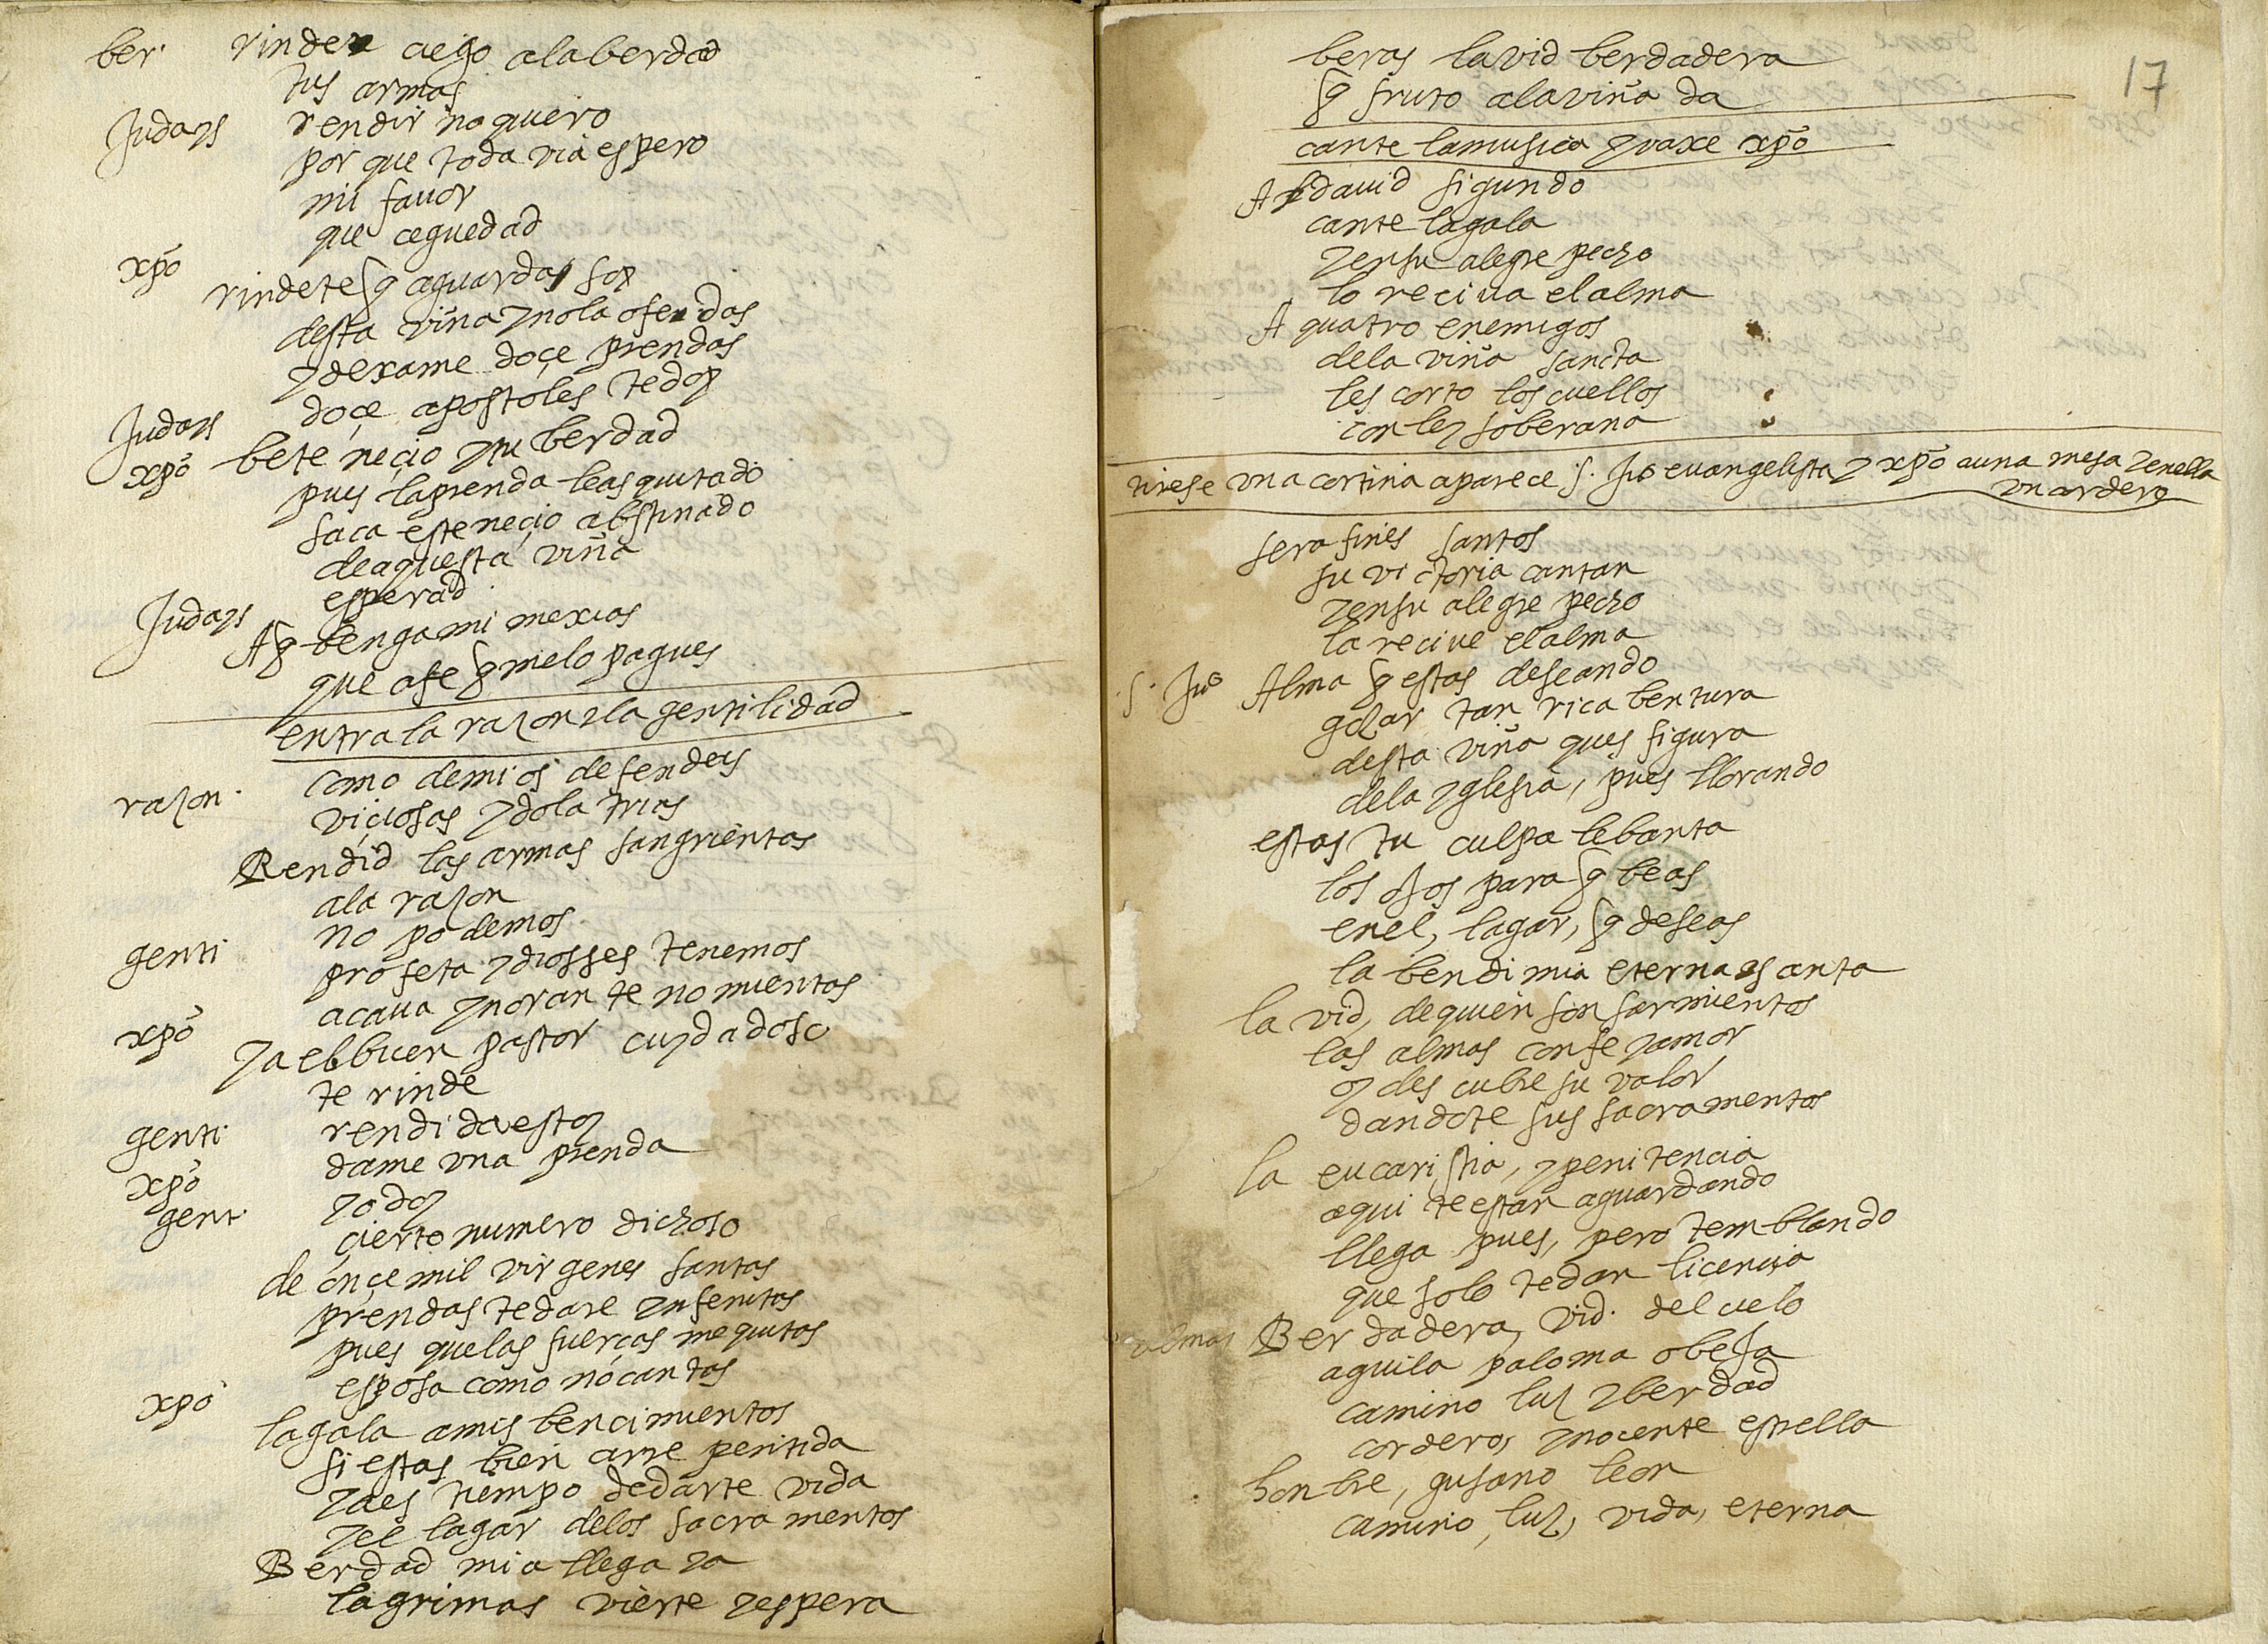 ber. rinde ciego ala berdad
tus armas
Judays rendir no quiero
por que toda via espero
mi fauor
xpo que ceguedad
rindete q aguardas soy
desta viña y no la ofendas
y dexame doçe prendas
doçe apostoles te doy
Judays bete neçio y tu berdad
xpo pues la prenda leas quitado
saca este neçio abstinado
de aquesta viña
Judays esperad
A q benga mi mexias
que a fe q me lo pagues
entra la razon y la gentilidad
razon. como de mi os defendeys
viçiosas ydolatrias
Rendid las armas sangrientas
ala razon
genti no podemos
profeta y diosses tenemos
xpo acaua ynorante no mientas
ya el buen pastor cuydadoso
te rinde
genti. rendida estoy
xpo dame vna prenda
gent. yo doy
çierto numero dichoso
de onçe mil virgenes santas
prendas te dare ynfenitas
pues que las fuerças me quitas
xpo esposa como no cantas
la gala a mis bencimientos
si estas bien arrepentida
ya es tiempo de darte vida
y el lagar de los sacramentos
Berdad mia llega ya
lagrimas vierte y espera
17
beras la vid berdadera
q fruto ala viña da
cante la musica y vaxe xpo
Al dauid sigundo
cante la gala
y en su alegre pecho
lo reciua el alma
A quatro enemigos
de la viña sancta
les corto los cuellos
con ley soberana
tirese vna cortina aparece s. Juo euangelista y xpo a una mesa y en ella
un cordero
serafines santos
su victoria cantan
y en su alegre pecho
la reciue el alma
s. Juo Alma q estas deseando
gozar tan rica bentura
desta viña ques figura
de la yglesia, pues llorando
estas tu culpa lebanta
los ojos para q beas
en el, lagar, q deseas
la bendimia eterna y santa
la vid, de quien son sarmientos
las almas con fe y amor
oy descubre su valor
dandote sus sacramentos
la eucaristia, y penitencia
aqui te estan aguardando
llega pues, pero temblando
que solo te dan licençia
almas Berdadera, vid. del cielo
aguila paloma obeja
camino luz y berdad
cordero, ynocente estrella
honbre, gusano leon
camino, luz, vida, eterna